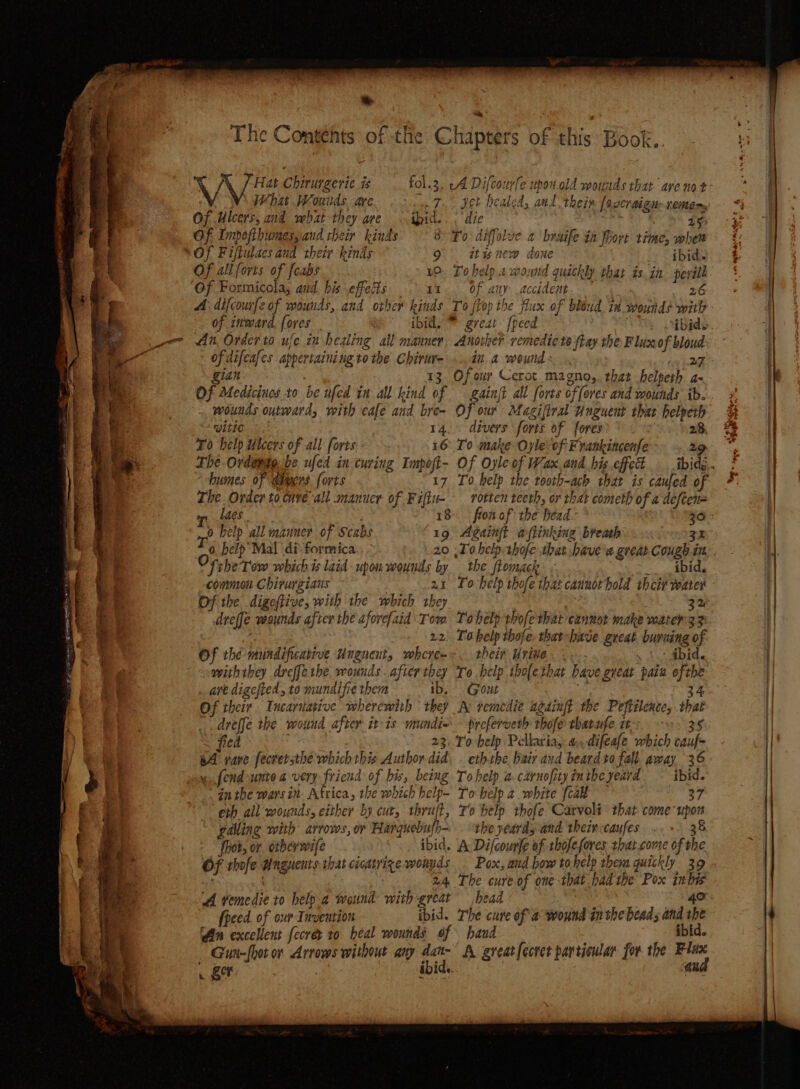 The Contents of the Chapters of this Book.
WHat Chirurgerie is fol.3.
What Wounds are. 7.
Of Ulcers, and what they are ibid.
Of Imposthumes, and their kinds 8
Of Fistulaes and their kinds 9
Of all sorts of scabs 10
Of Formicola, and his effects 11
A discourse of wounds, and other kinds
of inward sores ibid.
An Order to use in healing all manner
of diseases appertaining to the Chirur-
gian 13
Of Medicines to be used in all kind of
wounds outward, with ease and bre-
vitie 14
To help Ulcers of all sorts 16
The Order to be used in curing Impost-
humes of divers sorts 17
The Order to cure all manner of Fistu-
laes 18
To help all manner of Scabs 19
To help Mal di formica. 20
Of the Tow which is laid upon wounds by
common Chirurgians 21
Of the digestive, with the which they
dresse wounds after the aforesaid Tow
22
Of the mundificative Unguent, where-
with they dresse the wounds after they
are digested, to mundifie them ib.
Of their Incarnative wherewith they
dresse the wound after it is mundi-
fied 23
A rare secret, the which this Author did
send unto a very friend of his, being
in the wars in Africa, the which help-
eth all wounds, either by cut, thrust,
galling with arrows, or Harquebush-
shot, or otherwise ibid.
Of those Unguents that cicatrize wounds
24
A remedie to help a wound with great
speed of our Invention ibid.
An excellent secret to heal wounds of
Gun-shot or Arrows without any dan-
ger ibid.
A Discourse upon old wounds that are not
yet healed, and their soveraigne reme-
die 25
To dissolve a bruise in short time, when
it is new done ibid.
To help a wound quickly that is in perill
of any accident 26
To stop the flux of bloud in wounds with
great speed ibid.
Another remedie to stay the Flux of bloud
in a wound 27
Of our Cerot magno, that helpeth a-
gainst all sorts of sores and wounds ib.
Of our Magistral Unguent that helpeth
divers sorts of sores 28.
To make Oyle of Frankincense 29
Of Oyle of Wax and his effect ibid.
To help the tooth-ach that is caused of
rotten teeth, or that cometh of a descen-
sion of the head 30
Against a stinking breath 31
To help those that have a great Cough in
the stomack ibid.
To help those that cannot hold their water
32
To help those that cannot make water 33
To help those that have great burning of
their Urine ibid.
To help those that have great pain of the
Gout 34
A remedie against the Pestilence, that
preserveth those that use it 35
To help Pellaria, a disease which caus-
eth the hair and beard to fall away 36
To help a carnosity in the yeard ibid.
To help a white scall 37
To help those Carvoli that come upon
the yeard, and their causes 38
A Discourse of those sores that come of the
Pox, and how to help them quickly 39
The cure of one that had the Pox in his
head 40
The cure of a wound in the head, and the
hand ibid.
A great secret particular for the Flux
and